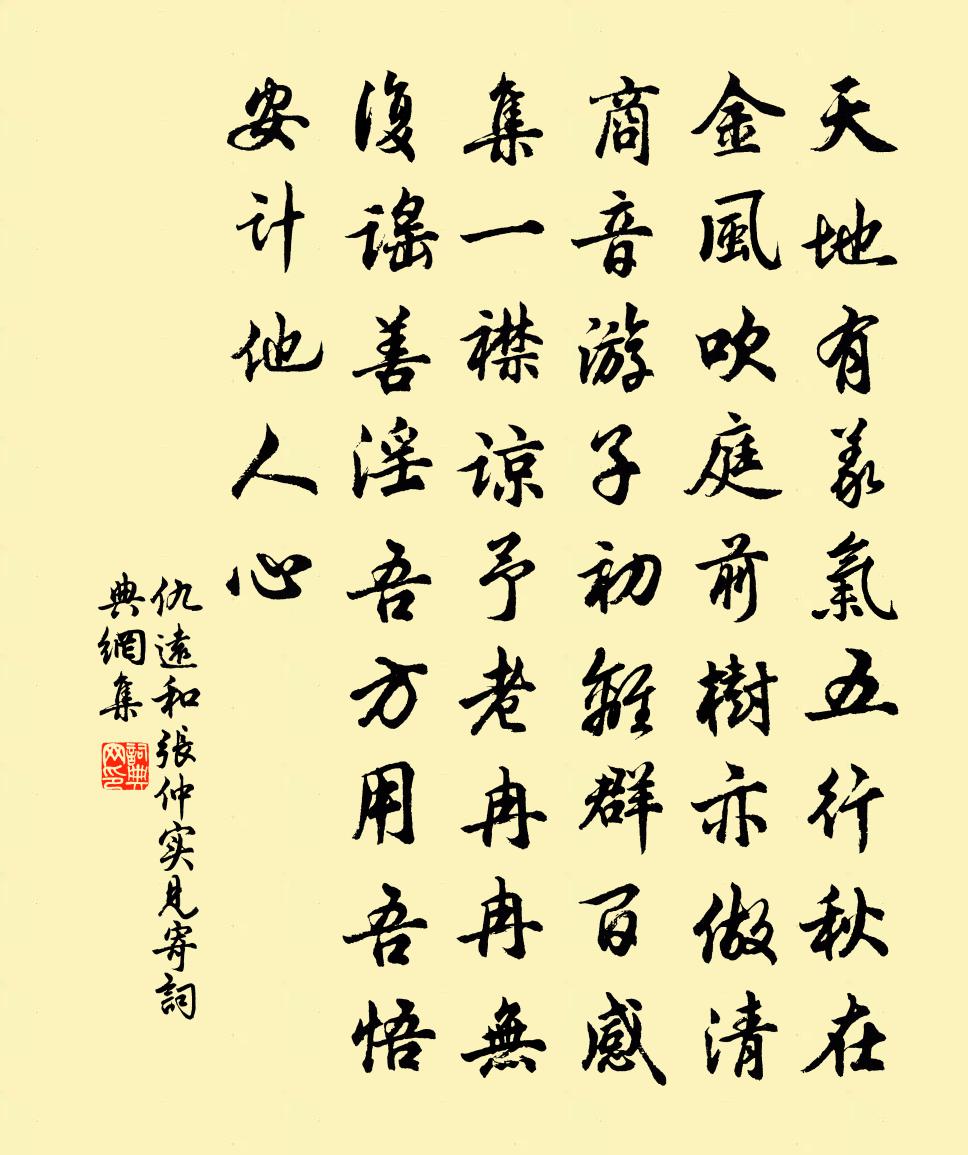 天地有義氣五行秋在
金風吹庭前樹亦做清
商音游子初離群百感
集一襟諒予老冉冉無
復謠善淫吾方用吾悟
安计他人心
仇遠和張仲实見寄詞
典網集
詞典